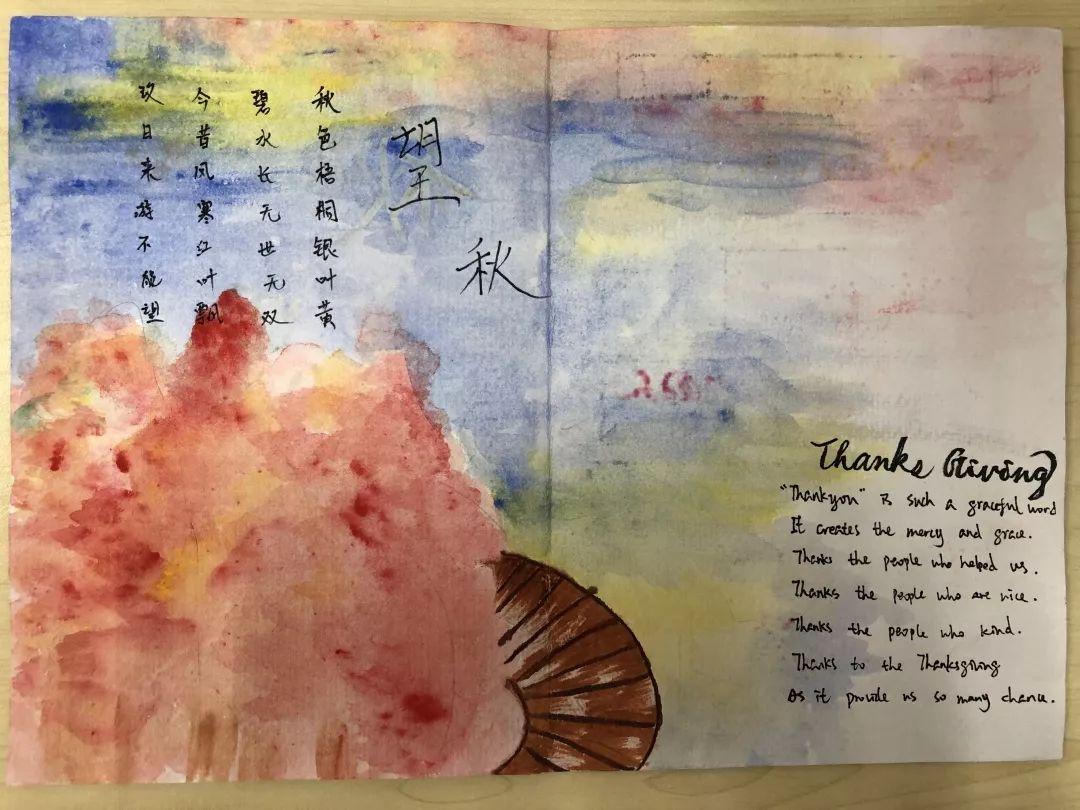 望秋
秋色梧桐银叶黄
碧水长无世无双
今昔风寒红叶飘
玖日来游不能望
Thanks Giving
"Thank you" is such a graceful word
It creates the mercy and grace.
Thanks the people who helped us.
Thanks the people who are nice.
Thanks the people who kind.
Thanks to the Thanksgiving
As it provide us so many chance.